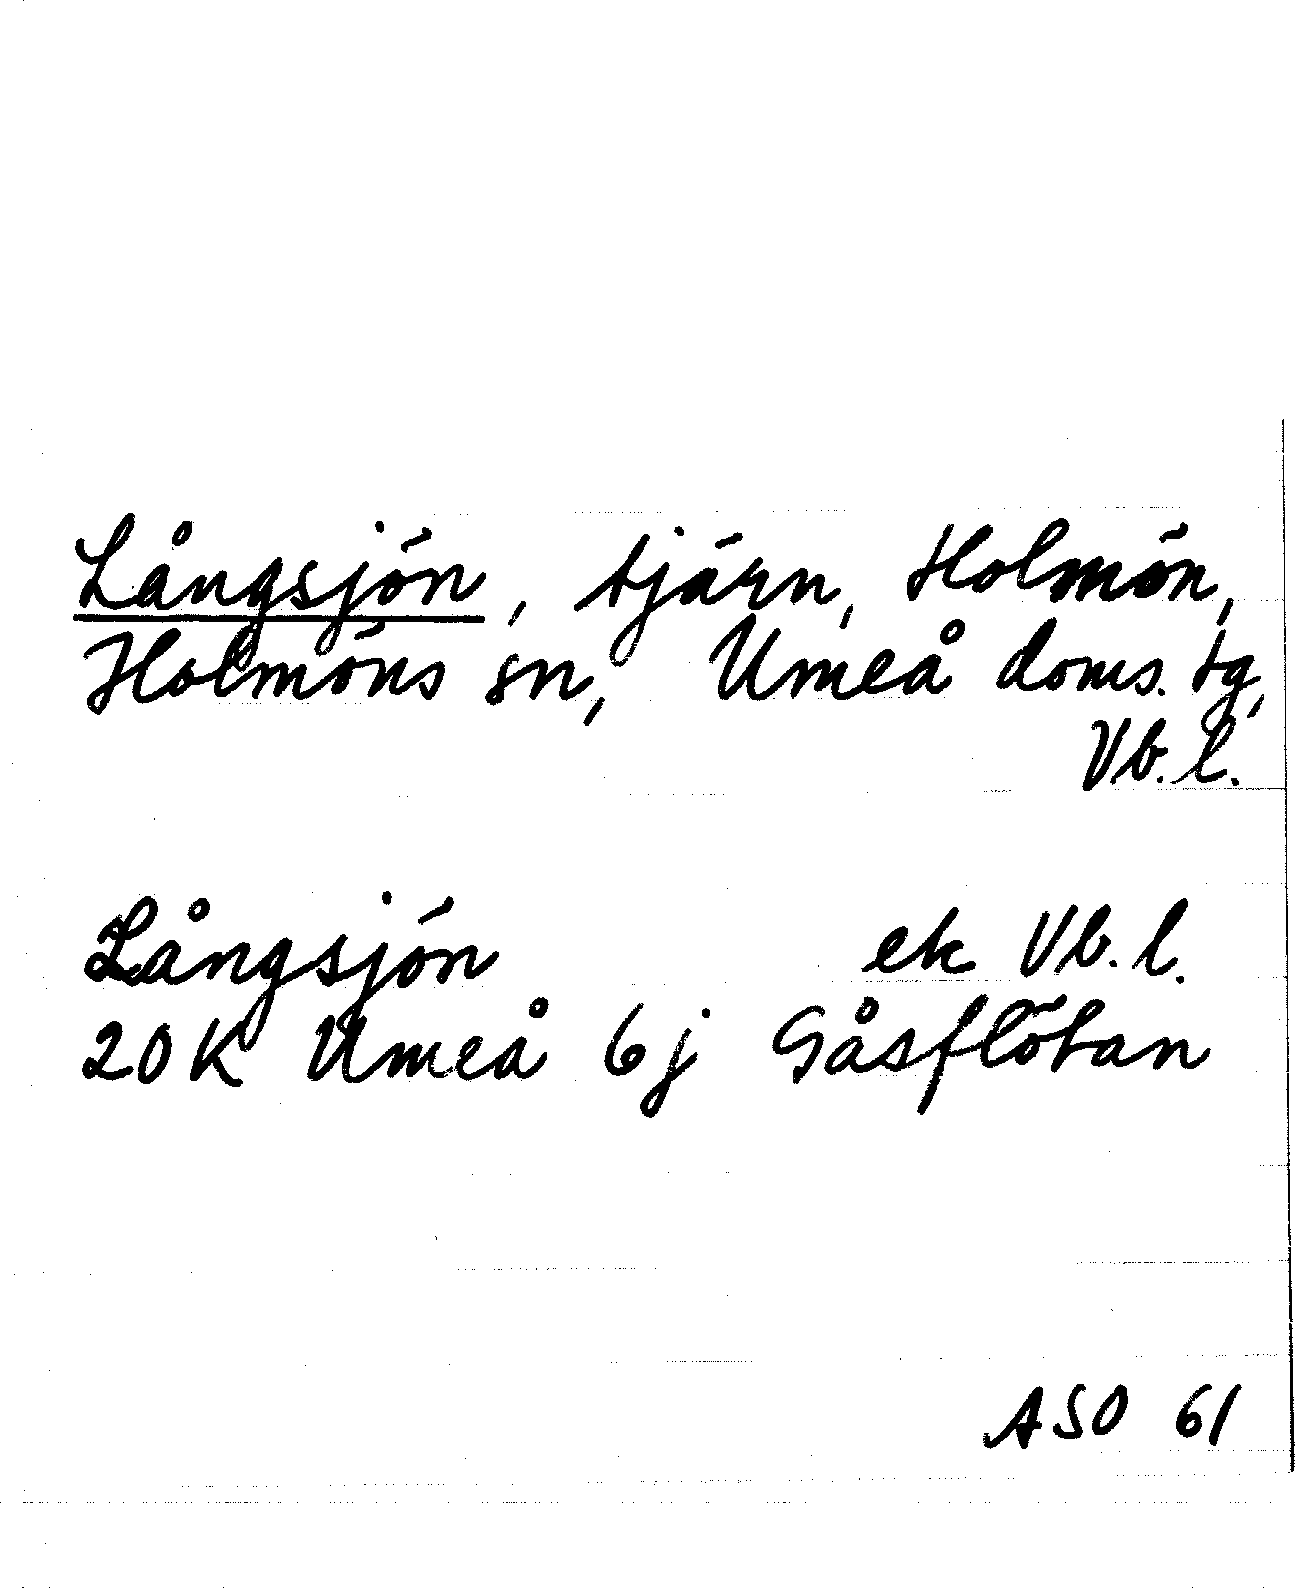 Långsjön, tjärn, Holmön,
Holmöns sn, Umeå doms. tg,
Vb. l.
Långsjön ek Vb. l.
20K Umeå 6j Gåsflötan
ASO 61